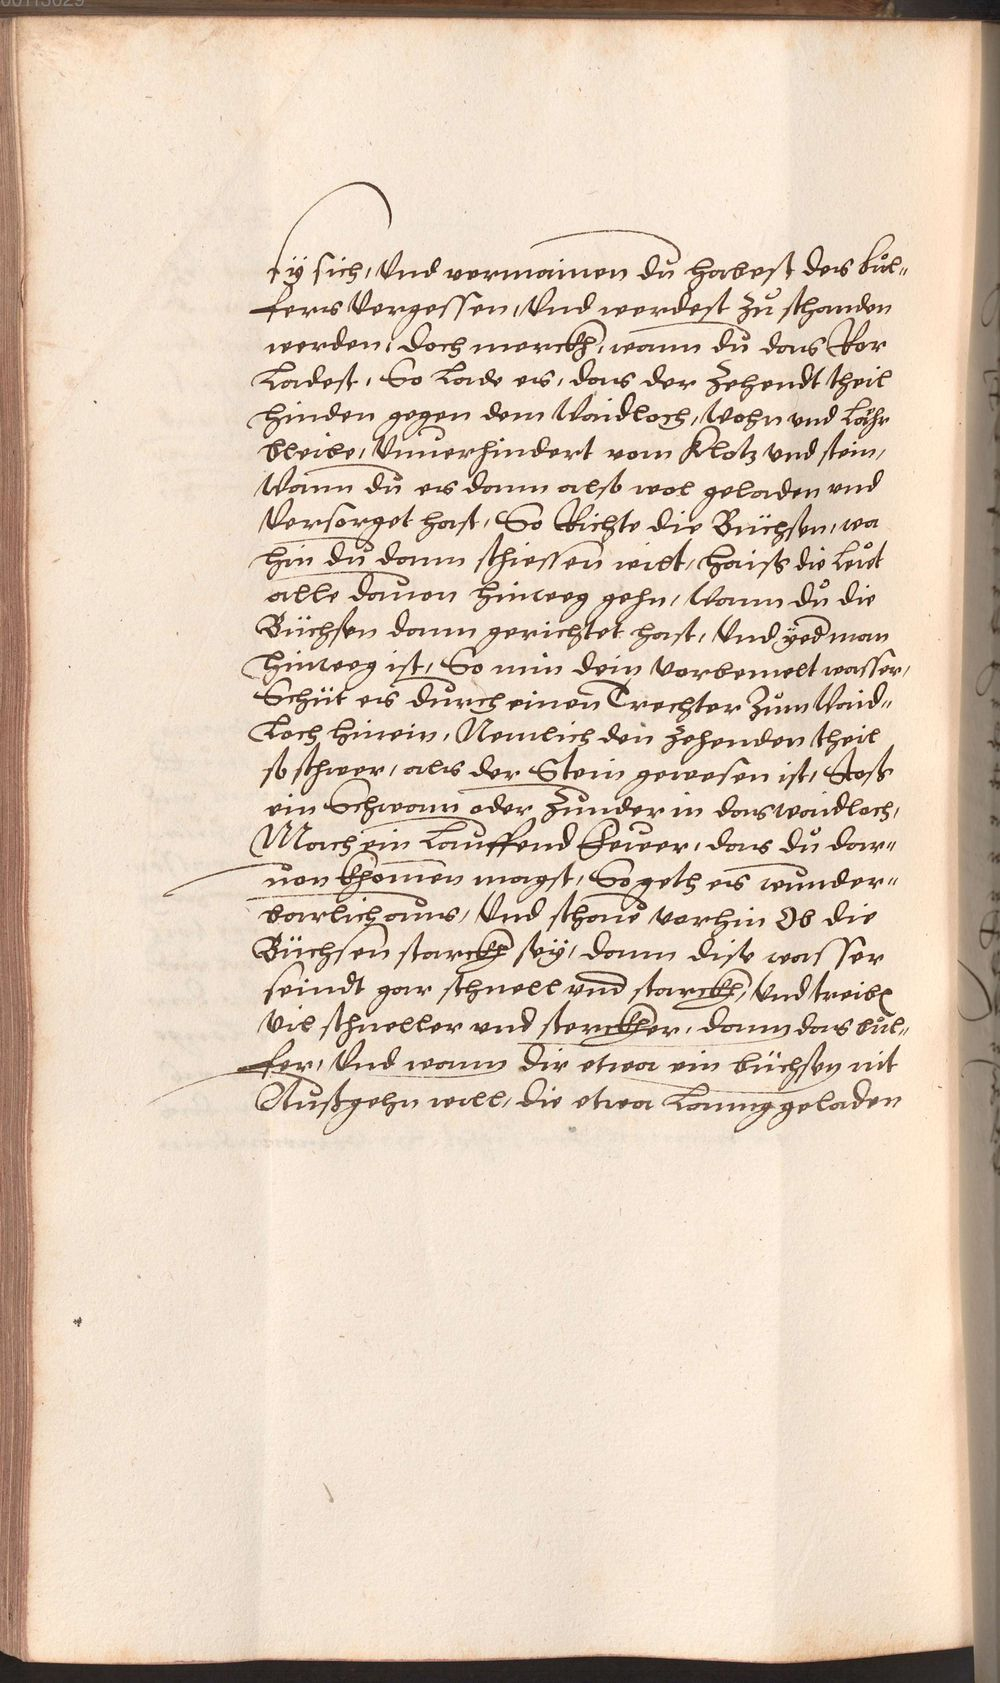 sÿ sich, Vnd vermainen du habest des bul-
fers Vergessen, Vnd werdest zu schanden
werden, Doch merckh, wann du das Ror
Ladest, So Lade es, das der zehendt theil
hinden gegen dem Waidloch, Wohn vnd Lähr
bleibe, Vnuerhindert vom Klotz vnd stein,
Wann du es dann also wol geladen vnd
Versorget hast, So Richte die Büchsen, wa
hin du dann schiessen wilt, haiß die Leut
alle dauon hinweg gehn, Wann du die
Büchsen dann gerichtet hast, Vnd yedman
hinweg ist, So nim dein vorbemelt wasser,
Schüt es durch einen Trechter zum Waid-
Loch hinein, Nemlich den zehenden theil
so schwer, als der Stein gewesen ist, Stoß
ein Schwam oder Zunder in das waidloch,
Mach ein Lauffend Fewer, das du dar-
uon khomen magst, So geth es wunder-
barlich aus, Vnd schaue vorhin Ob die
Büchsen starckh seÿ, dann dise wasser
seindt gar schnell vnd starckh, Vnd treiben
vil schneller vnd sterckher, dann das bul-
fer, Vnd wann dir etwa ein büchsen nit
Außgehn will, die etwa Lanng geladen